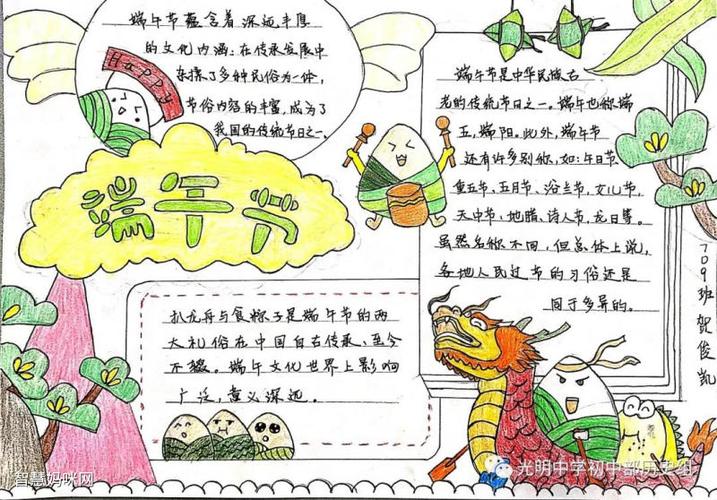 端午节蕴含着深远丰厚
的文化内涵:在传承发展中
杂揉了多种民俗为一体,
节俗内容的丰富,成为了
我国的传统节日之一。
HAPPY
端午节
扒龙舟与食粽子是端午节的两
大礼俗在中国自古传承,至今
不辍。端午文化世界上影响
广泛,意义深远。
端午节是中华民族古
老的传统节日之一。端午也称端
五,端阳。此外,端午节
还有许多别称,如:午日节、
重五节,五月节、浴兰节,女儿节,
天中节、地腊、诗人节,龙日等。
虽然名称不同,但总体上说,
各地人民过节的习俗还是
同于多异的。
709班 贺俊凯
智慧妈咪网
光明中学初中部历史组